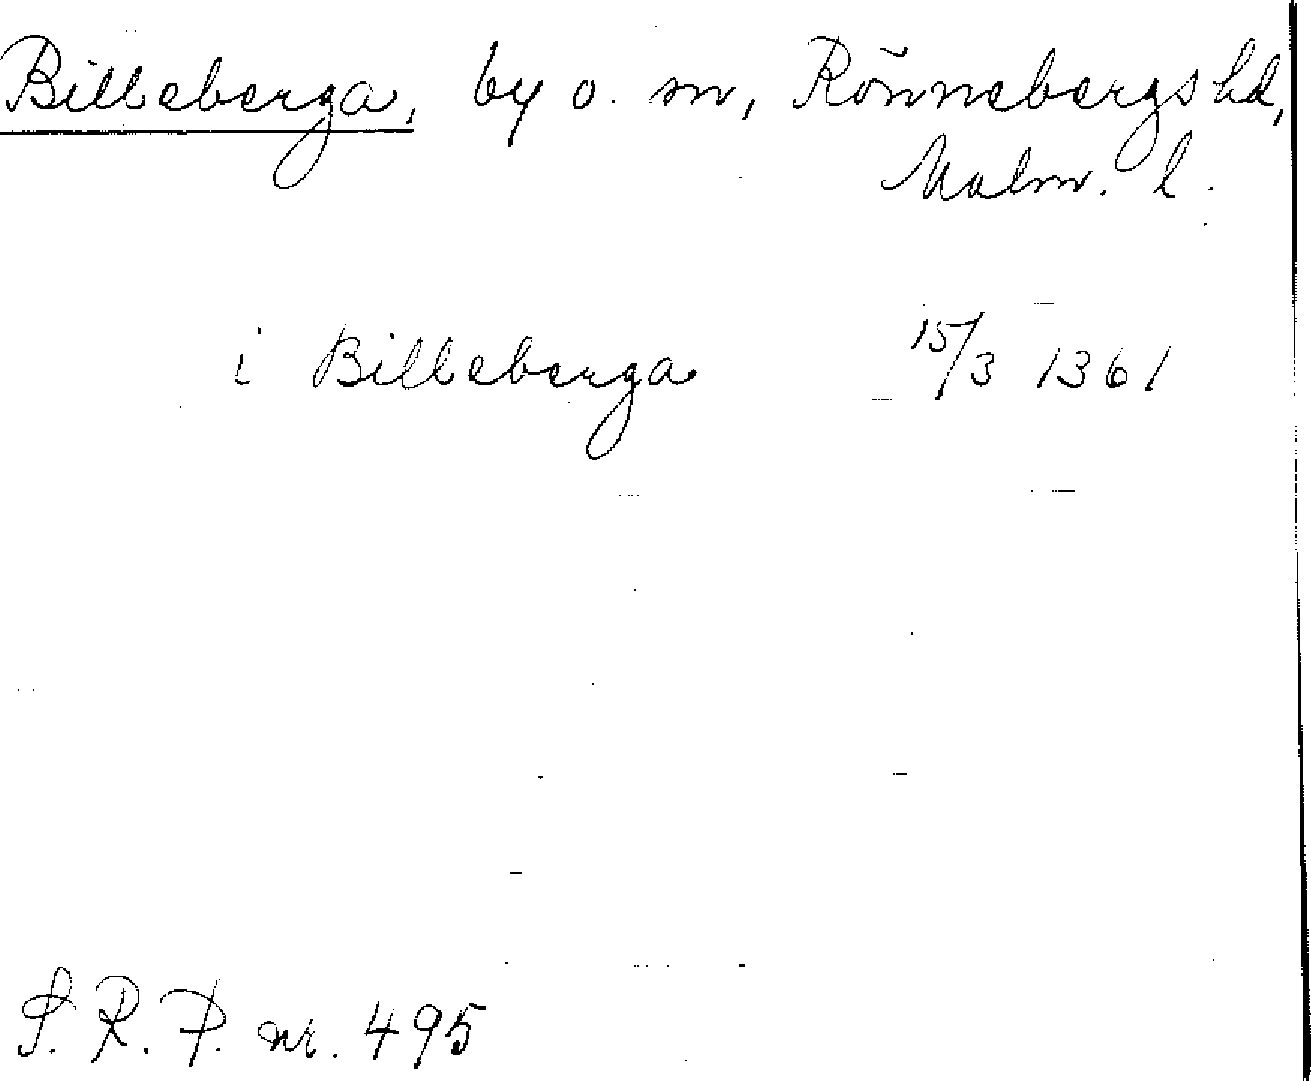 Billeberga, by o. sn, Rönnebergs hd,
Malm. l.
i Billeberga 15/3 1361
S. R. P. nr. 495